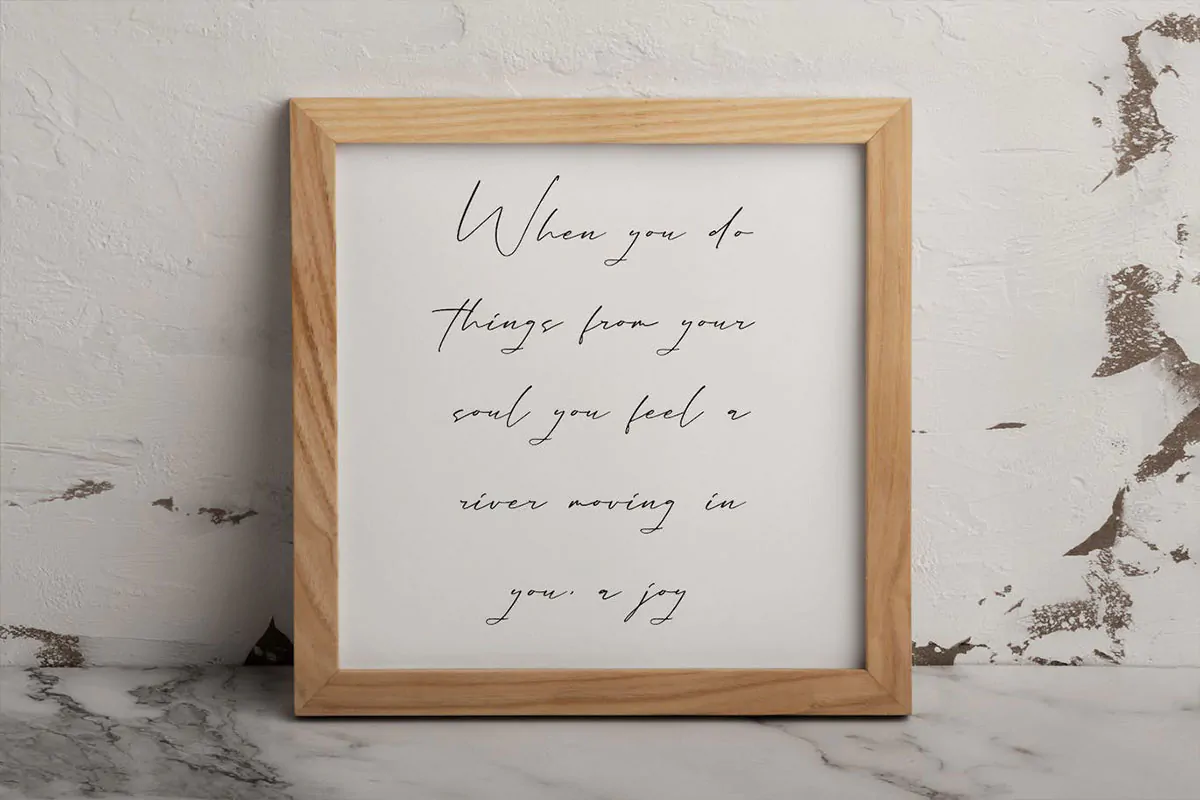 When you do
things from your
soul you feel a
river moving in
you. a joy